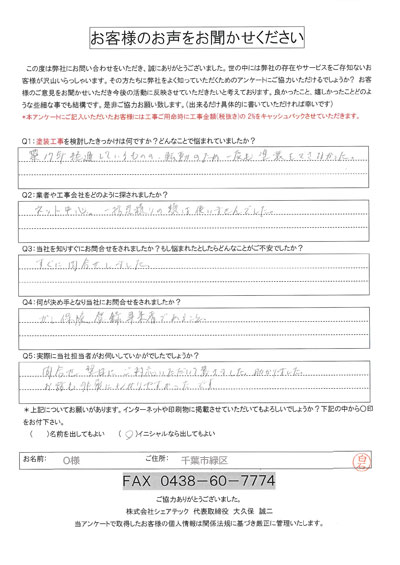 お客様のお声をお聞かせください
この度は弊社にお問い合わせをいただき、誠にありがとうございました。世の中には弊社の存在やサービスをご存知ないお
客様が沢山いらっしゃいます。その方たちに弊社をよく知っていただくためのアンケートにご協力いただけるでしょうか？ お客
様のご意見をお聞かせいただき今後の活動に反映させていただきたいと考えております。良かったこと、嬉しかったことどのよ
うな些細な事でも結構です。是非ご協力お願い致します。（出来るだけ具体的に書いていただければ幸いです）
*本アンケートにご記入いただいたお客様には工事ご用命時に工事金額(税抜き)の 2%をキャッシュバックさせていただきます。
Q1:塗装工事を検討したきっかけは何ですか？どんなことで悩まれていましたか？
築17年 経過しているものの、転勤のため 一度も 塗装をしてなかった。
Q2:業者や工事会社をどのように探されましたか？
ネット中心。一括見積りの類は使いませんでした。
Q3:当社を知りすぐにお問合せをされましたか？もし悩まれたとしたらどんなことがご不安でしたか？
すぐに問合せしました。
Q4:何が決め手となり当社にお問合せをされましたか？
保険 登録事業者であること。
Q5:実際に当社担当者がお伺いしていかがでしたでしょうか？
問合せ 翌日に ご対応いただいて 助かりました。
お話も 非常にわかりやすかったです
＊上記についてお願いがあります。インターネットや印刷物に掲載させていただいてもよろしいでしょうか？下記の中から〇印
をお付下さい。
（　）名前を出してもよい （〇）イニシャルなら出してもよい
お名前: O様 ご住所: 千葉市緑区
FAX 0438-60-7774
ご協力ありがとうございました。
株式会社シェアテック 代表取締役 大久保 誠二
当アンケートで取得したお客様の個人情報は関係法規に基づき厳正に管理いたします。